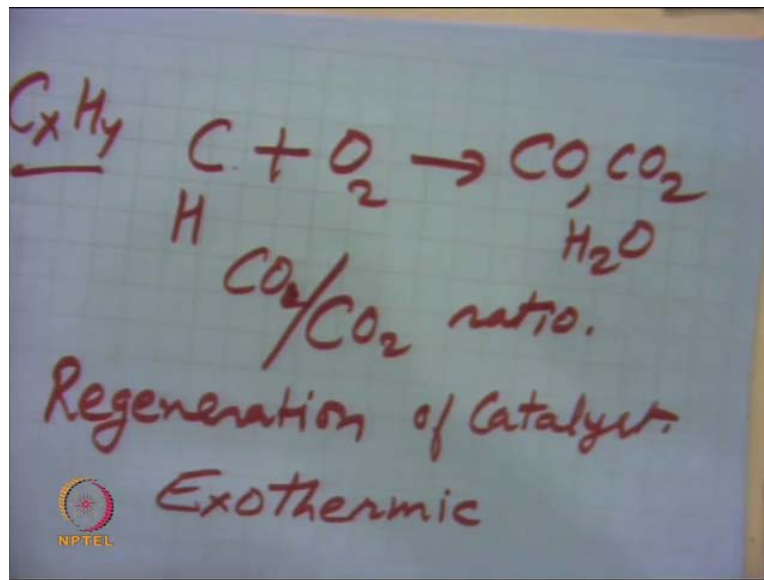 CxHy C + O2 → CO, CO2
H H2O
CO2/CO2 ratio.
Regeneration of Catalyst.
Exothermic
NPTEL